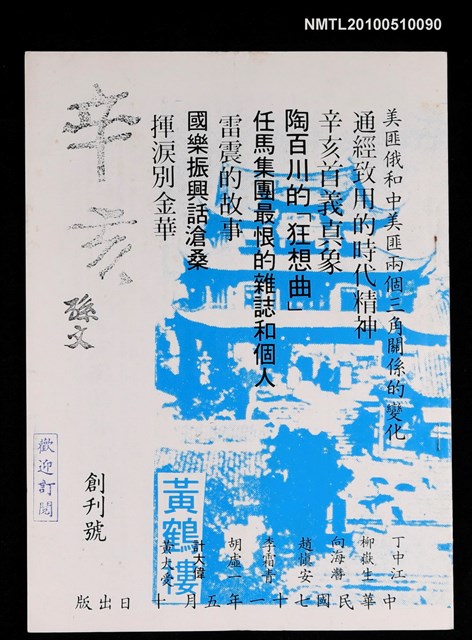 NMTL20100510090
美匪俄和中美匪兩個三角關係的變化
丁中江
通經致用的時代精神
柳嶽生
辛亥首義真象
向海潛
陶百川的「狂想曲」
趙慎安
任馬集團最恨的雜誌和個人
李霜青
雷震的故事
胡虛一
國樂振興話滄桑
計大偉
揮淚別金華
黃大受
黃鶴樓
辛亥
孫文
創刊號
歡迎訂閱
中華民國七十一年五月十日出版